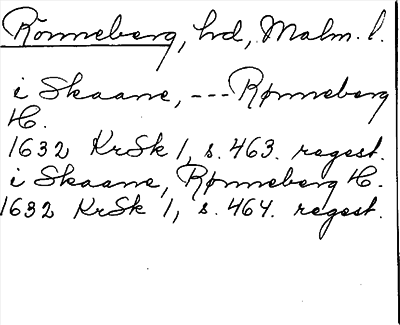 Rönneberg, hd, Malm. l.
i Skaane, --- Rønneberg
H.
1632 KrSk 1, s. 463. regest.
i Skaane, Rønneberg H.
1632 KrSk 1, s. 464. regest.